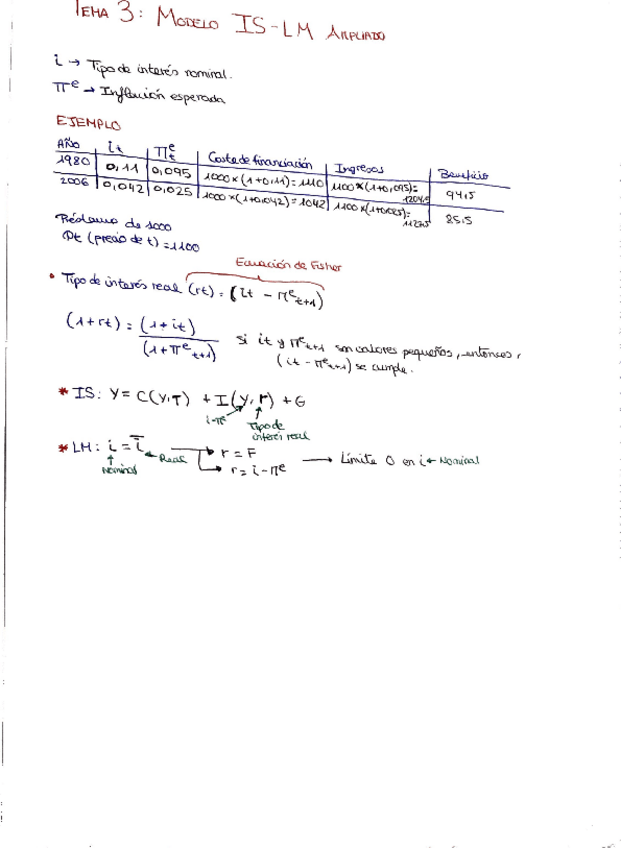 TEMA 3: MODELO IS-LM AMPLIADO
i → Tipo de interés nominal.
πe → Inflación esperada
EJEMPLO
AÑO | it | πet | Coste de financiación | Ingresos | Beneficio
1980 | 0,11 | 0,095 | 1000×(1+0,11)=1110 | 1100×(1+0,095)=1204,5 | 94,5
2006 | 0,042 | 0,025 | 1000×(1+0,042)=1042 | 1100×(1+0,025)=1127,5 | 85,5
Préstamo de 1000
Pt (precio de t)=1100
Ecuación de Fisher
• Tipo de interés real (rt) = (it - πet+1)
(1+rt) = (1+it) / (1+πet+1) si it y πet+1 son valores pequeños, entonces,
(it - πet+1) se cumple.
* IS: Y = C(Y,T) + I(Y,r) + G
i-πe Tipo de
interés real
* LM: i = i ← Real → r = F → Límite 0 en i ← Nominal
Nominal → r = i - πe